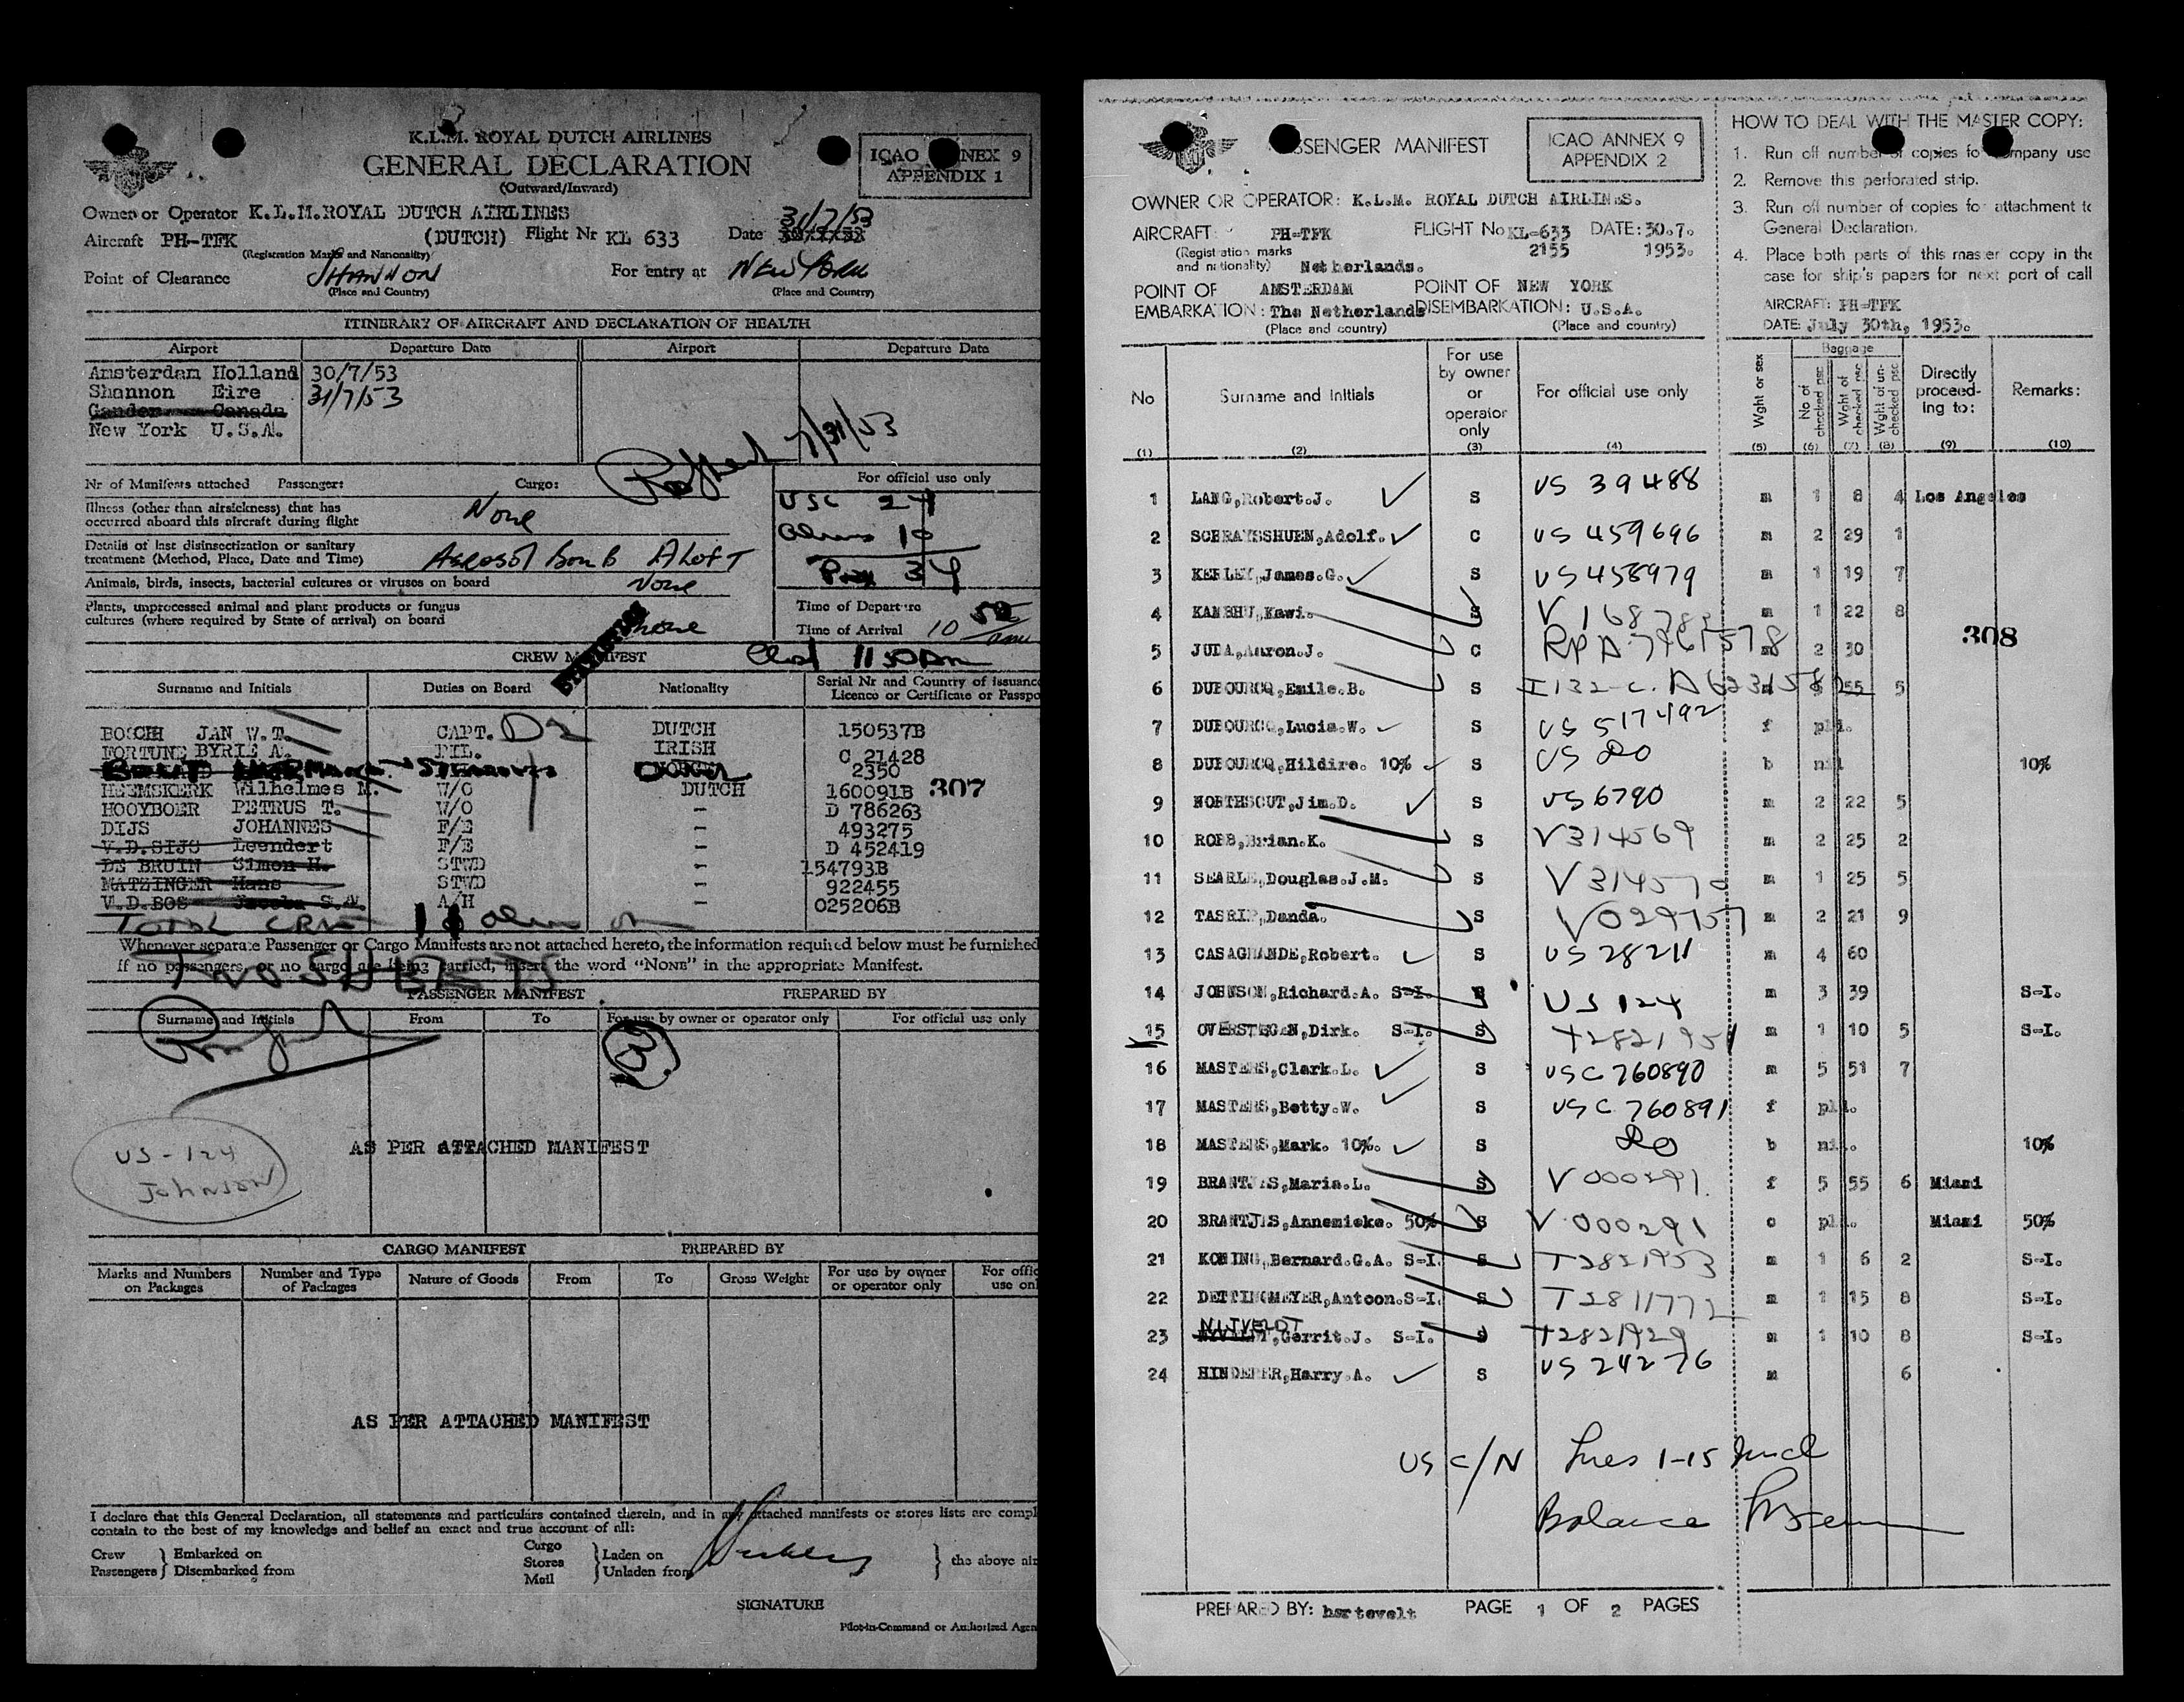 K.L.M. ROYAL DUTCH AIRLINES
GENERAL DECLARATION
(Outward/Inward)
ICAO ANNEX 9
APPENDIX 1
Owner or Operator K.L.M.ROYAL DUTCH AIRLINES
31/7/53
Aircraft PH-TFK (DUTCH) Flight Nr KL 633 Date 30/7/53
(Registration Marks and Nationality)
Point of Clearance SHANNON For entry at NEW YORK
(Place and Country) (Place and Country)
ITINERARY OF AIRCRAFT AND DECLARATION OF HEALTH
Airport Departure Date Airport Departure Date
Amsterdam Holland 30/7/53
Shannon Eire 31/7/53
Gander Canada
New York U.S.A.
7/31/53
Nr of Manifests attached Passenger: Cargo: For official use only
Illness (other than airsickness) that has
occurred aboard this aircraft during flight None
USC 24
Aliens 10
Details of last disinsectization or sanitary
treatment (Method, Place, Date and Time) AEROSOL BOMB ALOFT
34
Animals, birds, insects, bacterial cultures or viruses on board None
Plants, unprocessed animal and plant products or fungus
cultures (where required by State of arrival) on board None
Time of Departure
Time of Arrival 10 52 am
CREW MANIFEST 1150 am
Surname and Initials Duties on Board Nationality Serial Nr and Country of issuance
Licence or Certificate or Passpo
BOSCH JAN W.T. CAPT. D2 DUTCH 150537B
FORTUNE BYRIE A. PIL. IRISH C 21428
2350
HEEMSKERK Wilhelmes M. W/O DUTCH 160091B 307
HOOYBOER PETRUS T. W/O - D 786263
DIJS JOHANNES F/E - 493275
V.D.SIJS Leendert F/E - D 452419
DE BRUIN Simon H. STWD - 154793B
MATZINGER Hans STWD - 922455
V.D.BOS Jacoba S.W. A/H - 025206B
TOTAL CREW
Whenever separate Passenger or Cargo Manifests are not attached hereto, the information required below must be furnished
If no passengers, or no cargo are being carried, insert the word “NONE” in the appropriate Manifest.
TWO SHEETS
PASSENGER MANIFEST PREPARED BY
Surname and Initials From To For use by owner or operator only For official use only
US-124
Johnson
AS PER ATTACHED MANIFEST
CARGO MANIFEST PREPARED BY
Marks and Numbers on Packages Number and Type of Packages Nature of Goods From To Gross Weight For use by owner or operator only For offic use onl
AS PER ATTACHED MANIFEST
I declare that this General Declaration, all statements and particulars contained therein, and in any attached manifests or stores lists are compl
contain to the best of my knowledge and belief an exact and true account of all:
Crew Passengers } Embarked on Disembarked from Cargo Stores Mail } Laden on Unladen from } the above air
SIGNATURE
Pilot-in-Command or Authorized Agen
PASSENGER MANIFEST
ICAO ANNEX 9
APPENDIX 2
OWNER OR OPERATOR: K.L.M. ROYAL DUTCH AIRLINES.
AIRCRAFT: PH-TFK FLIGHT No KL-633 DATE: 30.7.
(Registration marks and nationality) Netherlands. 2155 1953.
POINT OF EMBARKATION: AMSTERDAM The Netherlands
(Place and country)
POINT OF DISEMBARKATION: NEW YORK U.S.A.
(Place and country)
HOW TO DEAL WITH THE MASTER COPY:
1. Run off number of copies for company use
2. Remove this perforated strip.
3. Run off number of copies for attachment to
General Declaration.
4. Place both parts of this master copy in the
case for ship's papers for next port of call
AIRCRAFT: PH-TFK
DATE: July 30th, 1953.
No Surname and Initials For use by owner or operator only For official use only Wght or sex Baggage No of checked psc Wght of checked psc Wght of un-checked psc Directly proceed-ing to: Remarks:
(1) (2) (3) (4) (5) (6) (7) (8) (9) (10)
1 LANG,Robert.J. S US 39488 m 1 8 4 Los Angeles
2 SCHRAYSSHUEN,Adolf. C US 459696 m 2 29 1
3 KERLEY,James.G. S US 458979 m 1 19 7
4 KAMBHU,Kawi. S m 1 22 8
308
5 JUDA,Aaron.J. C RPA 7961578 m 2 30
6 DUBOURCQ,Emile.B. S 55 5
7 DUBOURCQ,Lucia.W. S US 517492 f pll.
8 DUBOURCQ,Hildire. 10% S US do b nil 10%
9 NORTHSCUT,Jim.D. S US 6790 m 2 22 5
10 ROBB,Brian.K. S V314569 m 2 25 2
11 SEARLE,Douglas.J.M. S V314570 m 1 25 5
12 TASRIP,Danda. S V029757 m 2 21 9
13 CASAGRANDE,Robert. S US 28211 m 4 60
14 JOHNSON,Richard.A. S-I. US 124 m 3 39 S-I.
15 OVERSTEGEN,Dirk. S-I. S T2821951 m 1 10 5 S-I.
16 MASTERS,Clark.L. S USC 760890 m 5 51 7
17 MASTERS,Betty.W. S USC 760891 f pll.
18 MASTERS,Mark. 10%. S do b nil. 10%
19 BRANTJES,Maria.L. S V 000291 f 5 55 6 Miami
20 BRANTJES,Annemieke. 50% S V 000291 c pll. Miami 50%
21 KONING,Bernard.G.A. S-I. S T2821953 m 1 6 2 S-I.
22 DETTINGMEYER,Antoon.S-I. S T2811772 m 1 15 8 S-I.
23 NIJVELDT,Gerrit.J. S-I. S T2821929 m 1 10 8 S-I.
24 HINDERER,Harry.A. S US 24276 m 6
US C/N lines 1-15 incl
Balance
PREPARED BY: hartevelt PAGE 1 OF 2 PAGES